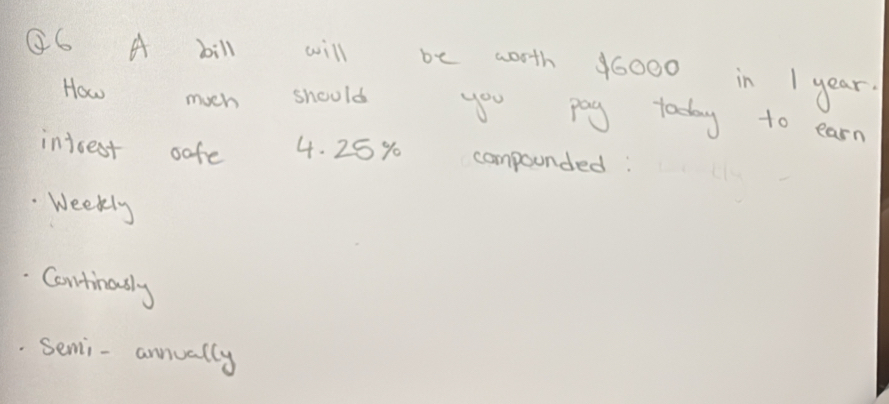 Q6 A bill will be worth $6000 in 1 year.
How much should you pay today to earn
intrest rate 4.25% compounded:
· Weekly
· Continously
· Semi- annually